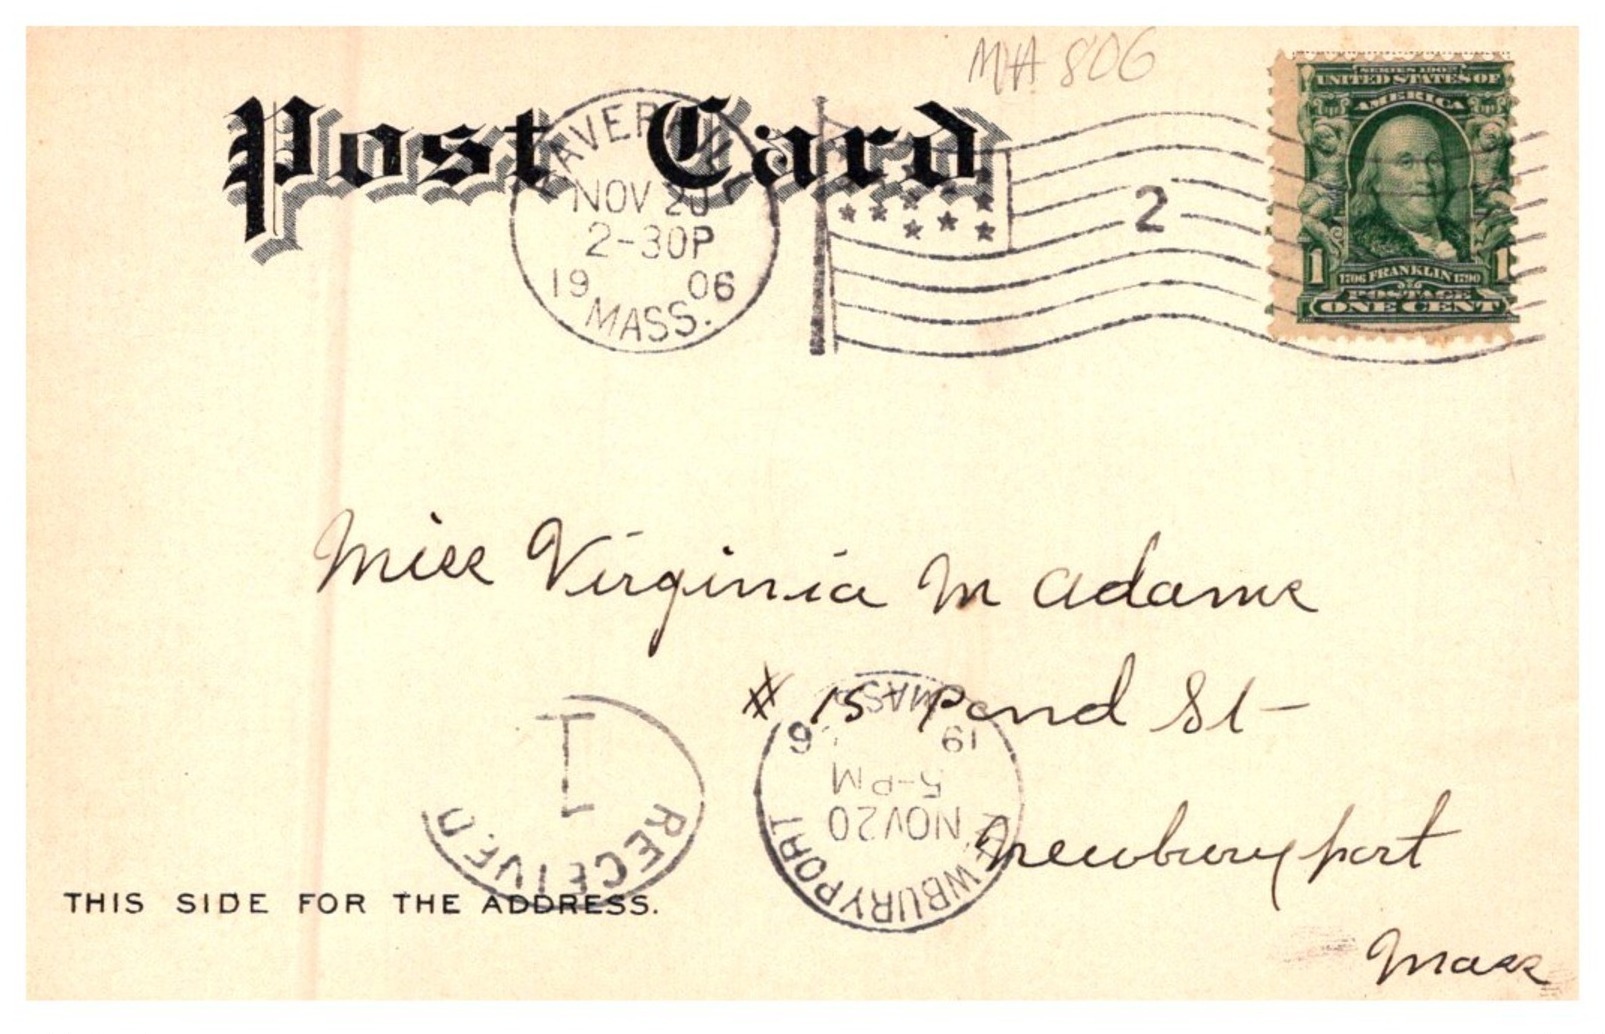 MA 806
Post Card
HAVERHILL
NOV 20
2-30P
19 06
MASS.
2
SERIES 1902
UNITED STATES OF
AMERICA
1 1706 FRANKLIN 1790 1
POSTAGE
ONE CENT
Miss Virginia M Adams
# 15 Pond St-
Newburyport
Mass
NEWBURYPORT
NOV 20
5-PM
19 6
MASS
1
RECEIVED
THIS SIDE FOR THE ADDRESS.